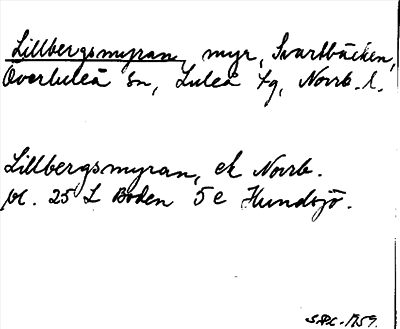 Lillbergsmyran, myr, Svartbäcken,
Överluleå sn, Luleå tg, Norrb. l.
Lillbergsmyran, ek Norrb.
bl. 25 L Boden 5e Hundsjö.
1959.